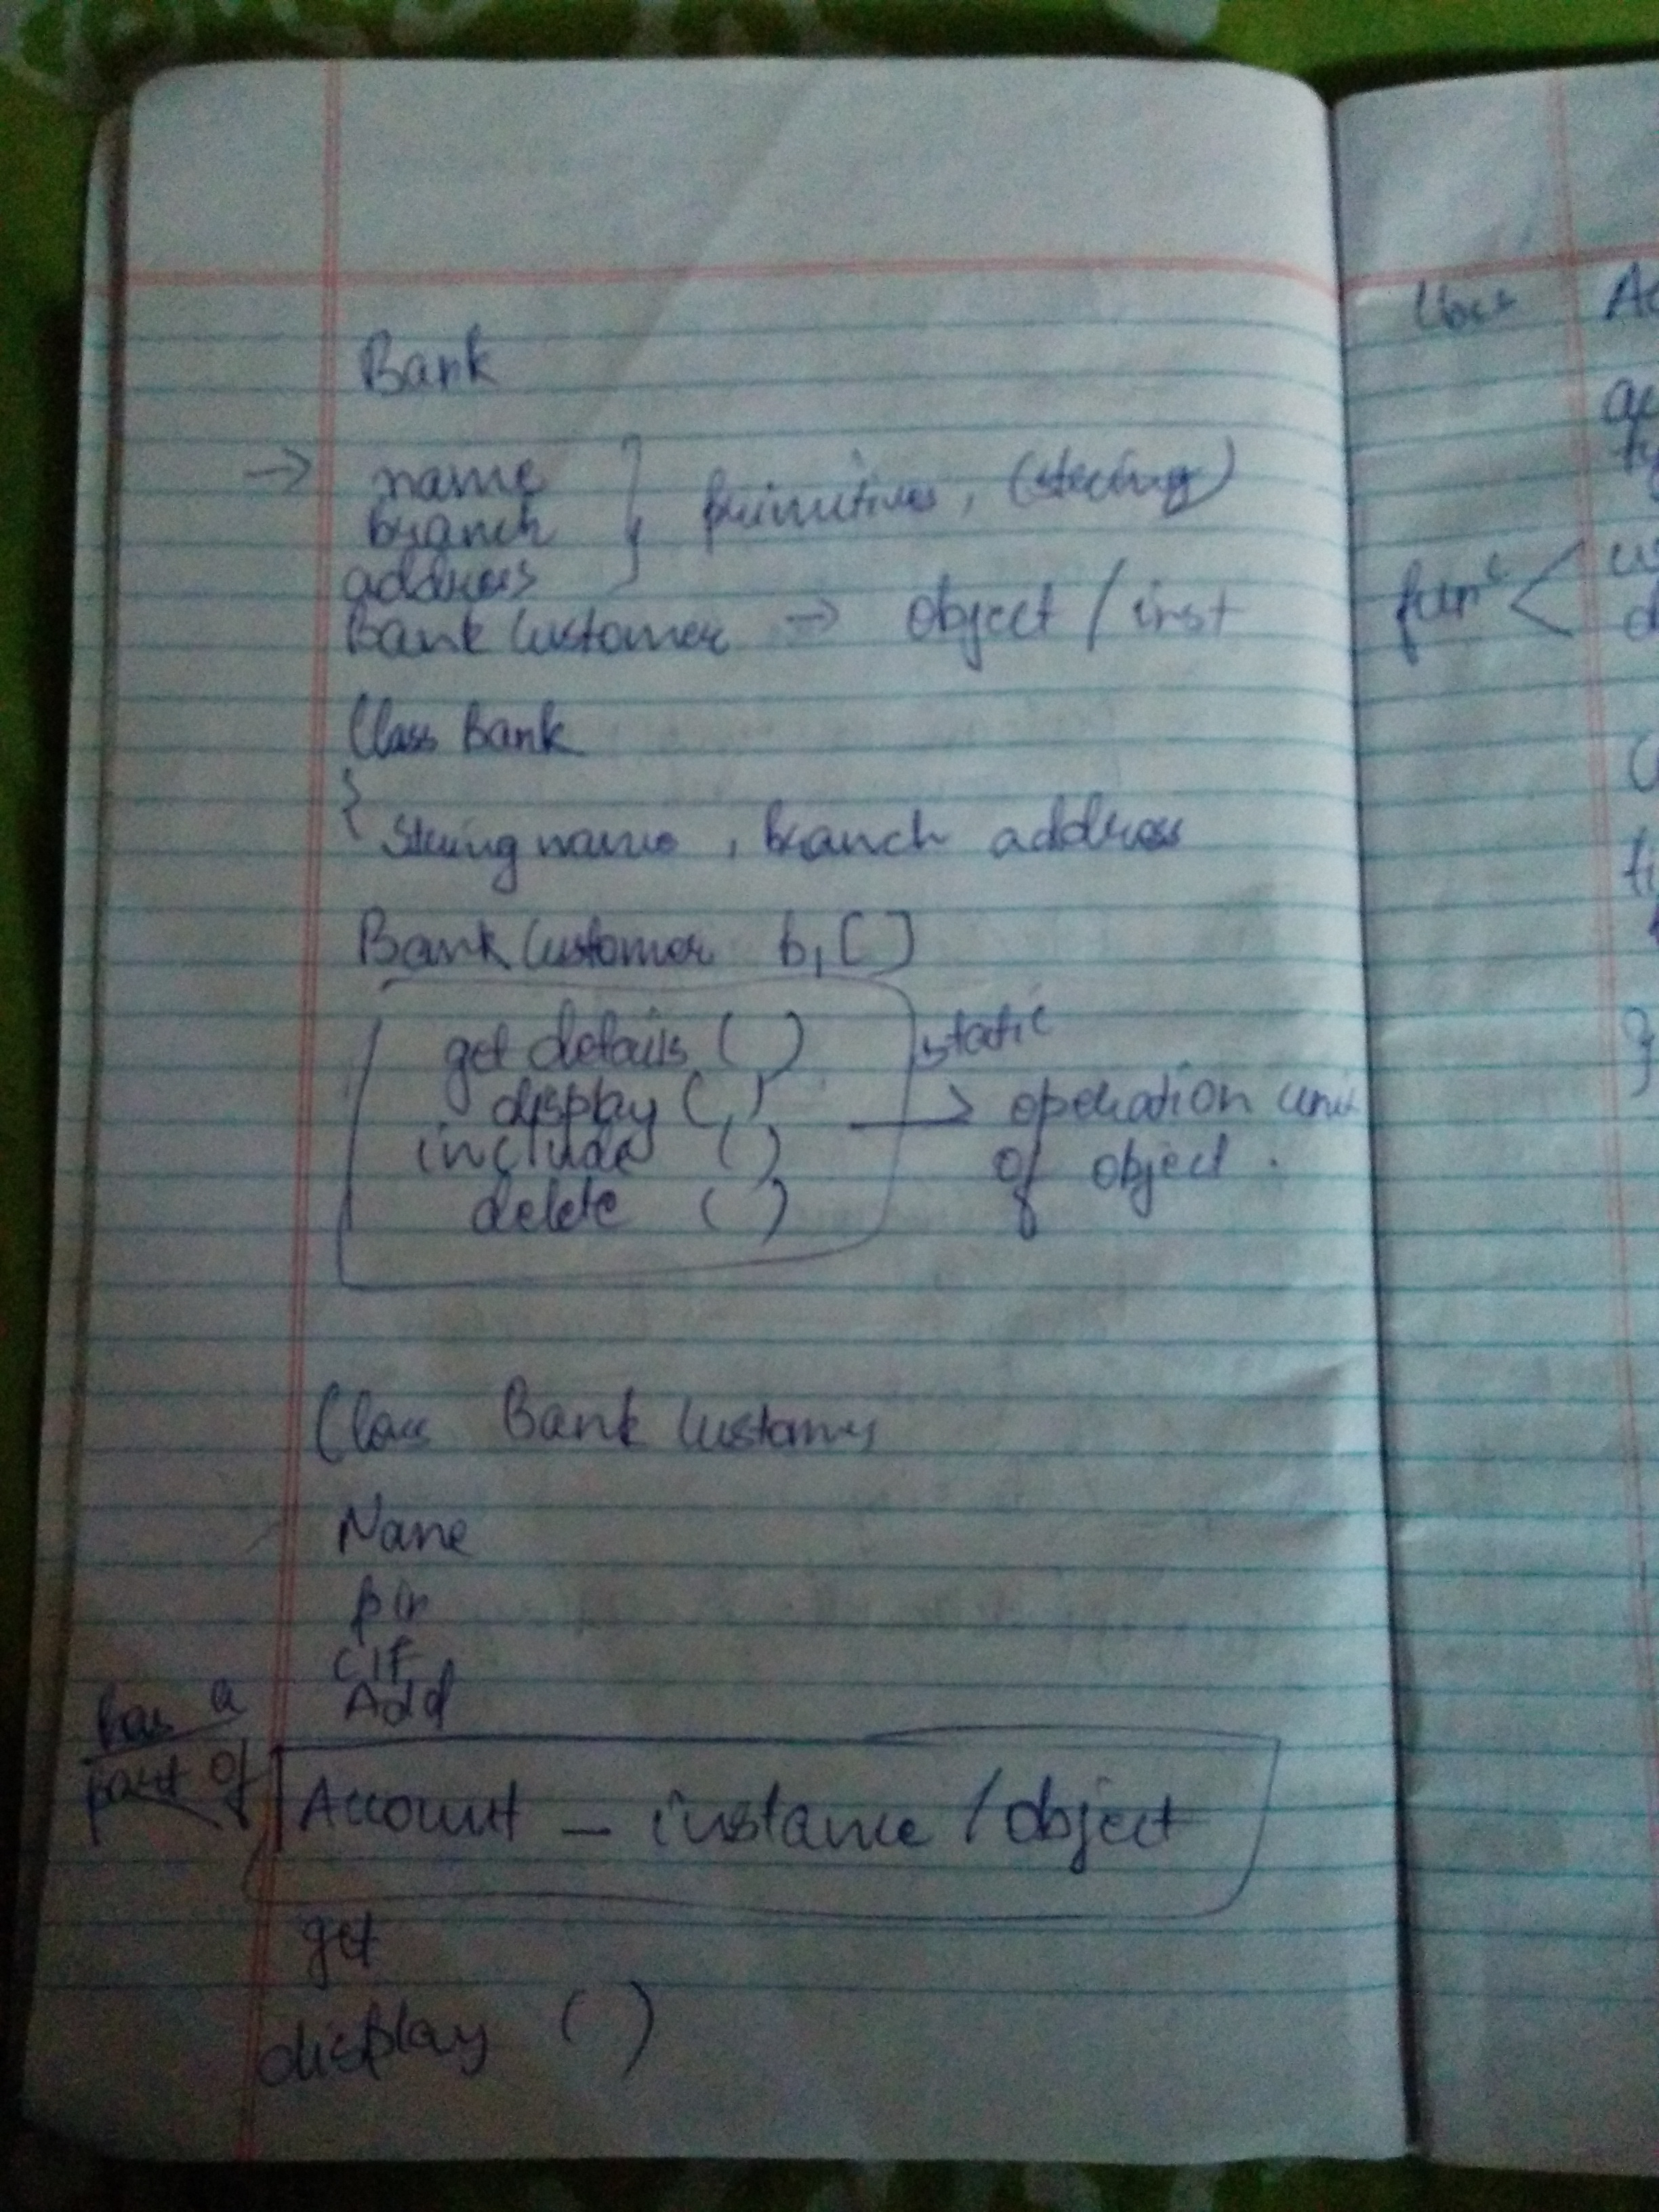 Bank
→ name
branch
address
} primitives, (string)
Bank Customer → object / inst
Class Bank
{
String name , branch address
Bank Customer b1 [ ]
get details ( )
display ( )
include ( )
delete ( )
static
→ operation unit
of object .
Class Bank Customer
Name
pin
CIF
Add
has a
part of
Account – instance / object
get
display ( )
Class
func <